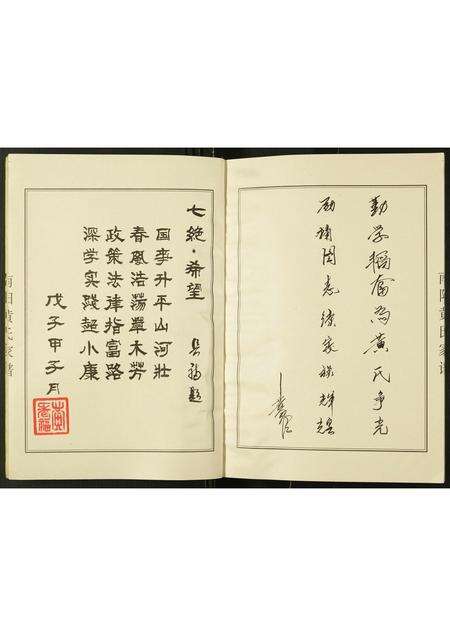 勤学耕奋为黄氏争光
励精图志续家族辉煌
南阳黄氏家谱
七絶·希望
国事升平山河壮
春風浩荡草木芳
政策法律指富路
深学实践超小康
戊子甲子月
南阳黄氏家谱